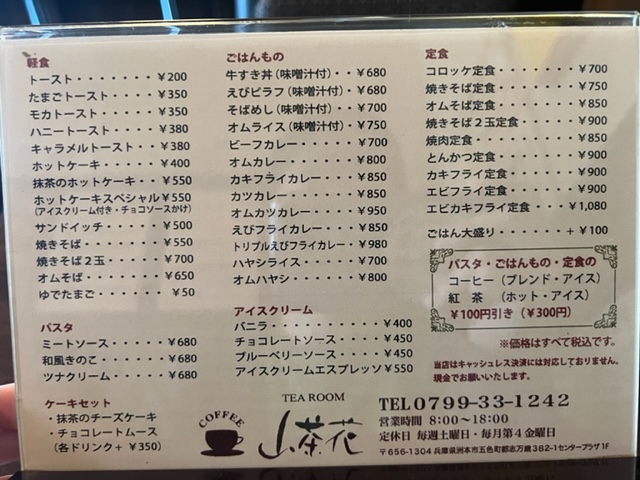 軽食
トースト・・・・・・・¥200
たまごトースト・・・・¥350
モカトースト・・・・・¥350
ハニートースト・・・・¥380
キャラメルトースト・・¥380
ホットケーキ・・・・・¥400
抹茶のホットケーキ・・¥550
ホットケーキスペシャル¥550
(アイスクリーム付き・チョコソースかけ)
サンドイッチ・・・・・¥500
焼きそば・・・・・・・¥550
焼きそば2玉・・・・・¥700
オムそば・・・・・・・¥650
ゆでたまご・・・・・・¥50
パスタ
ミートソース・・・・・¥680
和風きのこ・・・・・・¥680
ツナクリーム・・・・・¥680
ケーキセット
・抹茶のチーズケーキ
・チョコレートムース
(各ドリンク+ ¥350)
ごはんもの
牛すき丼(味噌汁付)・・¥680
えびピラフ(味噌汁付)・・¥680
そばめし(味噌汁付)・・¥700
オムライス(味噌汁付)・¥750
ビーフカレー・・・・・¥700
オムカレー・・・・・・¥800
カキフライカレー・・・¥850
カツカレー・・・・・・¥850
オムカツカレー・・・・¥950
えびフライカレー・・・¥850
トリプルえびフライカレー・¥980
ハヤシライス・・・・・¥700
オムハヤシ・・・・・・¥800
アイスクリーム
バニラ・・・・・・・・・・¥400
チョコレートソース・・・・¥450
ブルーベリーソース・・・・¥450
アイスクリームエスプレッソ ¥550
定食
コロッケ定食・・・・・・・¥700
焼きそば定食・・・・・・・¥750
オムそば定食・・・・・・・¥850
焼きそば2玉定食・・・・・¥900
焼肉定食・・・・・・・・・¥850
とんかつ定食・・・・・・・¥900
カキフライ定食・・・・・・¥900
エビフライ定食・・・・・・¥900
エビカキフライ定食・・・¥1,080
ごはん大盛り・・・・・・+¥100
パスタ・ごはんもの・定食の
コーヒー(ブレンド・アイス)
紅 茶 (ホット・アイス)
¥100円引き(¥300円)
※価格はすべて税込です。
当店はキャッシュレス決済には対応しておりません。
現金でお願いいたします。
COFFEE
TEA ROOM
山茶花
TEL0799-33-1242
営業時間 8:00〜18:00
定休日 毎週土曜日・毎月第4金曜日
〒656-1304 兵庫県洲本市五色町都志万歳382-1センタープラザ1F